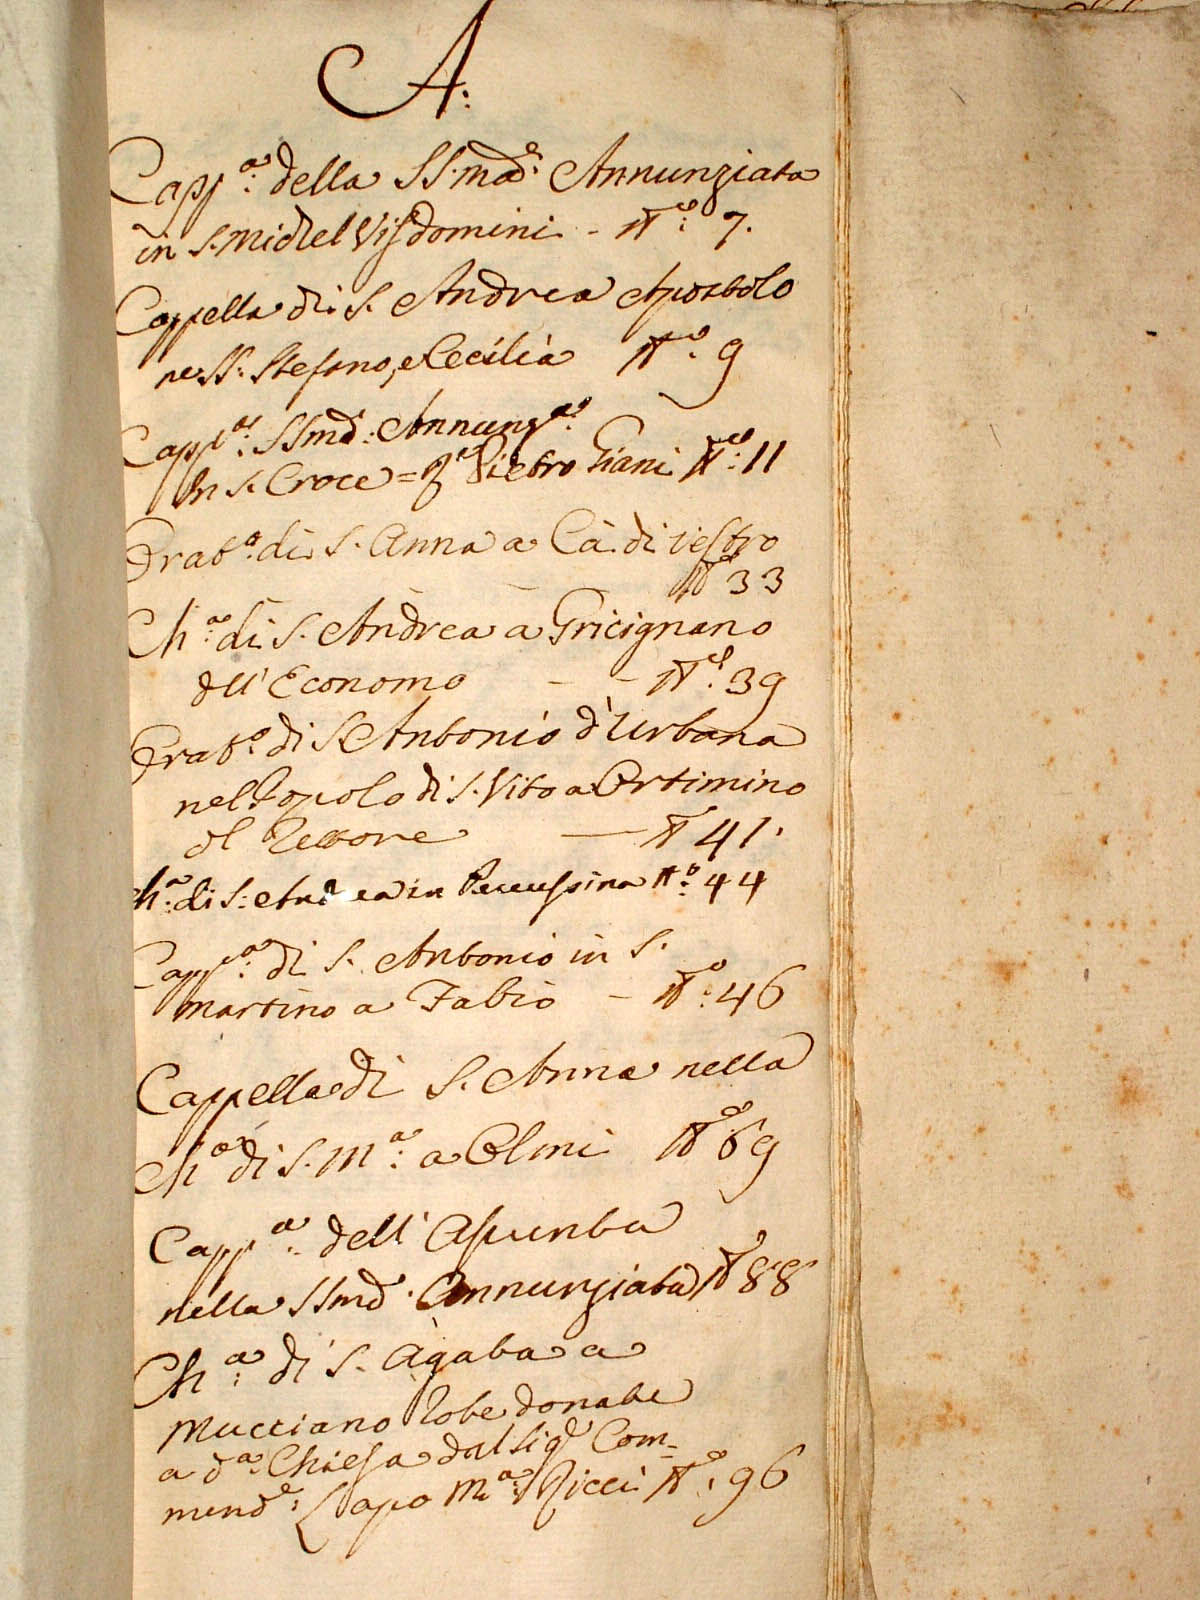 A:
Capp.a della SS.ma Annunziata
in S. Michel Visdomini - N.o 7.
Cappella di S. Andrea Apostolo
ne SS. Stefano, e Cecilia N.o 9
Capp.a SSma: Annunz.a
In S. Croce = Pietro Giani N.o: 11
Orat.o di S. Anna a Ca di vestro
N.o 33
Ch.a di S. Andrea a Gricignano
dell' Economo - - N.o 39
Orat.o di S Antonio d'Urbana
nel Popolo di S. Vito a Ortimino
al Rettore — N 41.
Ch.a di S: Andrea in Percussina N.o 44
Capp.a di S. Antonio in S.
Martino a Fabio - N.o 46
Cappella di S. Anna nella
Ch.a di S. M.a a Olmi N.o 69
Capp.a dell' Assunta
nella SSma. Annunziata N.o 88
Ch.a di S. Agata a
Mucciano Robe donate
a d.a Chiesa dal Sig.e Com-
mend.e: Lapo M.a Ricci N.o 96